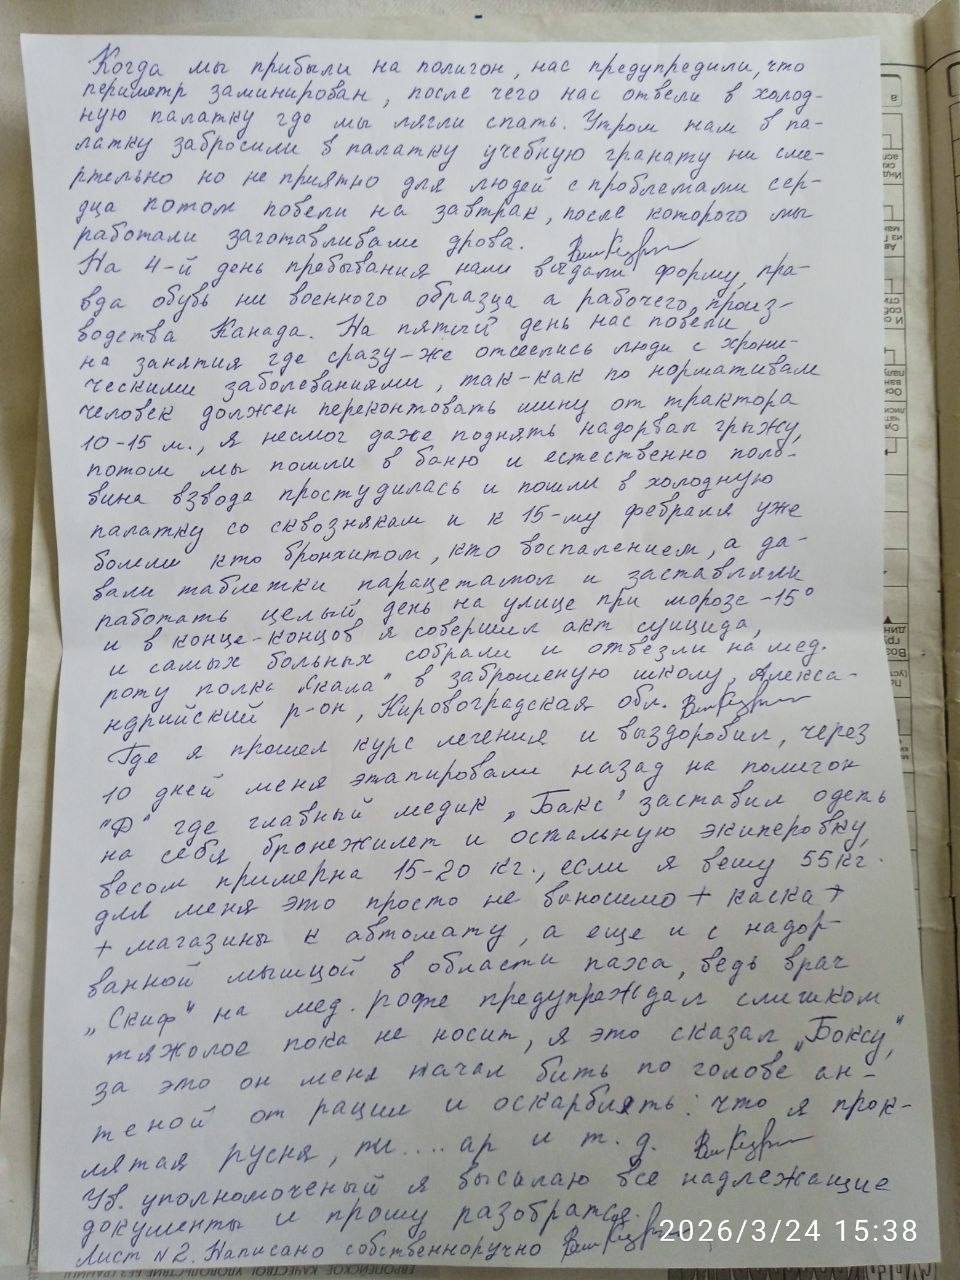 Когда мы прибыли на полигон, нас предупредили, что
периметр заминирован, после чего нас отвели в холод-
ную палатку где мы лягли спать. Утром нам в па-
латку забросили в палатку учебную гранату ни сме-
ртельно но не приятно для людей с проблемами сер-
дца потом повели на завтрак, после которого мы
работали заготавливали дрова.
На 4-й день пребывания нами выдали форму, пра-
вда обувь ни военного образца а рабочего, произ-
водства Канада. На пятый день нас повели
на занятия где сразу-же отсеелись люди с хрони-
ческими заболеваниями, так-как по нормативам
человек должен переконтовать шину от трактора
10-15 м., я несмог даже поднять надорвал грыжу,
потом мы пошли в баню и естественно поло-
вина взвода простудилась и пошли в холодную
палатку со сквознякам и к 15-му февраля уже
болели кто бронхитом, кто воспалением, а да-
вали таблетки парацетамол и заставляли
работать целый день на улице при морозе -15°
и в конце-концов я совершил акт суицида,
и самых больных собрали и отвезли на мед.
роту полка "Скала" в заброшеную школу, Алекса-
ндрийский р-он, Кировоградская обл.
Где я прошел курс лечения и выздоровил, через
10 дней меня этапировали назад на полигон
"Ф" где главный медик „Бакс" заставил одеть
на себя бронежилет и остальную экиперовку,
весом примерна 15-20 кг., если я вешу 55 кг.
для меня это просто не выносимо + каска +
+ магазины к автомату, а еще и с надор-
ванной мышцой в области паха, ведь врач
„Скиф" на мед. роте предупреждал слишком
тяжолое пока не носит, я это сказал „Боксу",
за это он меня начал бить по голове ан-
теной от рации и оскарблять: что я прок-
лятая русня, ти....ар и т. д.
Ув. уполномоченый я высылаю все надлежащие
документы и прошу разобратся.
Лист N2. Написано собственноручно
2026/3/24 15:38